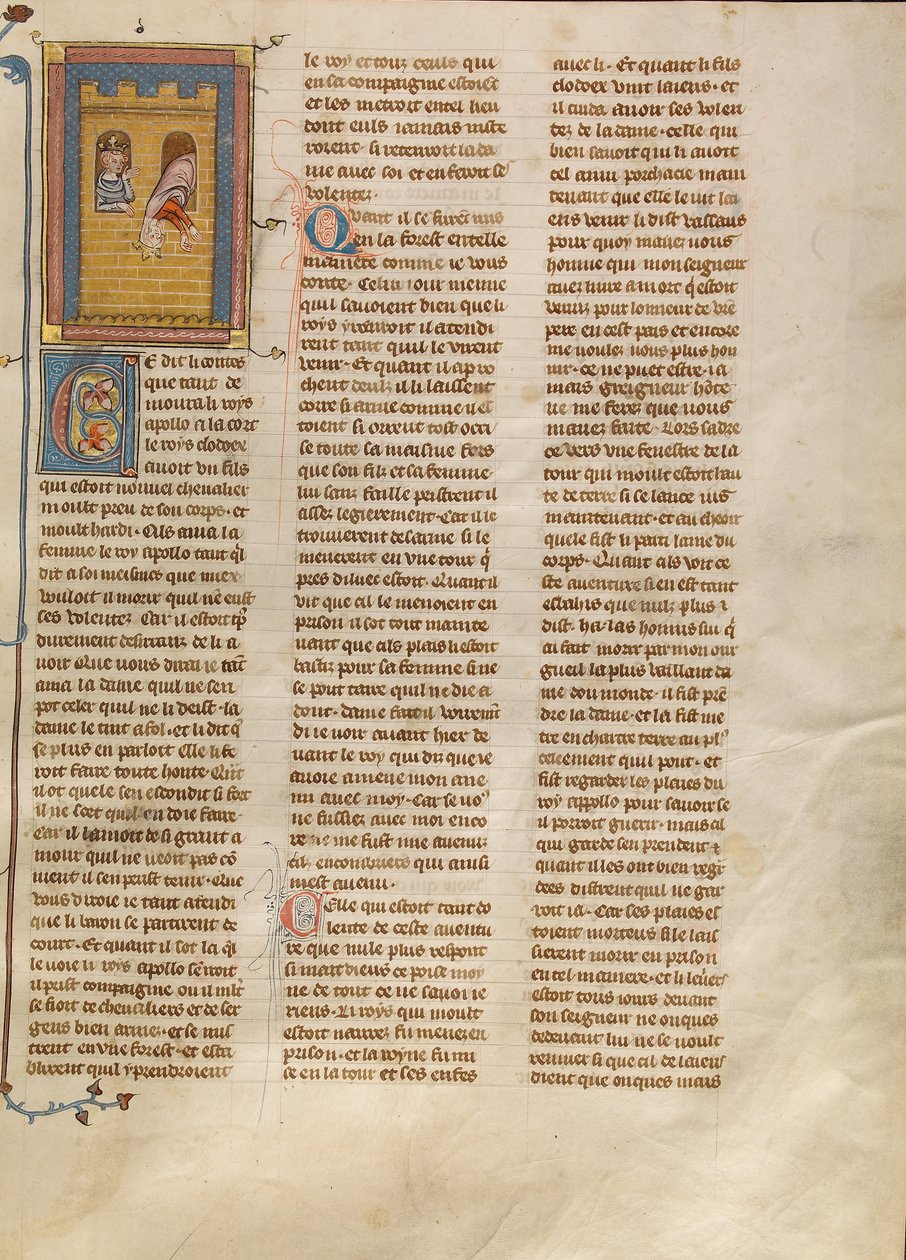 E dit li contes
que tant de
moura li roys
apollo a la cort
le roys clodoex
auoit vn fils
qui estoit nouuel cheualier
moult preu de son corps · et
moult hardi · Cils ama la
femme le roy apollo tant qͥl
dit a soi meismes que miex
vuloit il morir quil nē eust
ses volentez Car il estoit sp̄
durement desirranz de li a
uoir Que vous diroi ie tāt
ama la dame quil ne sen
pot celer quil ne li deist · la
dame le tint a fol · et li dit qͥ
se plus en parloit elle li fe
roit faire toute honte · Qn̄t
il ot quele sen escondit si fort
il ne scet quil en doie faire ·
Car il lamoit de si grant a
mour quil ne ueoit pas cō
ment il sen peust tenir · Que
vous diroie ie tant atendi
que li baron se partirent de
court · Et quant il sot la qͥl
le uoie li roys apollo sen iroit
il prist compaignie ou il mist
se fiort de cheualiers et de ser
gens bien armez · et se mis
trent en vne forest · et esta
blirent quil y prendroient
le roy et touz ceuls qui
en sa compaignie estoiēt
et les metroit en tel lieu
dont euls iamais niste
roient · si retenroit la da
me auec soi et en feroit ses
volentez ·
Quant il se furēt mis
en la forest en telle
maniere comme ie vous
conte · Celui iour meime
quil sauoient bien que li
roys y venroit il atendi
rent tant quil le virent
venir · Et quant il apro
chent deulz il li laissent
corre si arme comme il es
toient si orrent tost occi
se toute sa maisnie fors
que son filz et sa femme
lui sanz faille pristrent il
assez legierement · Car il le
trouuerent desarme si le
menerent en vne tour qͥ
pres diluec estoit · Quant il
vit que cil le menoient en
prison il sot tout mainte
nant que cils plais li estoit
bastiz pour sa femme si ne
se pout taire quil ne die a
dont · dame fait il voiremt̄
di ie voir auant hier de
uant le roy qui dis que ie
auoie amene mon ane
mi auec moy · Car se uoꝰ
ne fussiez auec moi enco
re ne me fust mie auenuz
cilz encombriers qui ainsi
mest auenu ·
Celle qui estoit tant do
lente de ceste auentu
re que nule plus respont
si mait dieus ce poise moy
ne de tout ce ne sauoi ie
riens · Li roys qui moult
estoit naurez fu menez en
prison · et la royne fu mi
se en la tour et ses enfes
auec li · Et quant li fils
clodoex vint laiens · et
il cuida auoir ses volen
tez de la dame · celle qui
bien sauoit qui li auoit
cel anui porchacie main
tenant que elle le uit lai
ens venir li dist vassaus
pour quoy mauez uous
honnie qui mon seigneur
auez liure a mort qͥ estoit
venuz pour lonneur de vr̄e
pere en cest pais et encore
me uoulez uous plus hon
nir · ce ne puet estre · ia
mais greigneur hōte
ne me ferez que uous
mauez faite · Lors sadre
ce vers vne fenestre de la
tour qui moult estoit hau
te de terre si se lance ius
maintenant · et au cheoir
quele fist li parti lame du
corps · Quant cils voit ce
ste auenture si en est tant
esbahis que nulz plus ⁊
dist · ha · las honnis sui qͥ
ai fait morir par mon our
gueil la plus vaillant da
me dou monde · il fist prē
dre la dame · et la fist me
tre en chartre terre au plꝰ
celeement quil pout · et
fist regarder les plaies du
roy appollo pour sauoir se
il porroit guerir · mais cil
qui garde sen prendent ⁊
quant il les ont bien regͣr
dees distrent quil ne gar
roit ia · Car ses plaies es
toient morteus si le lais
sierent morir en prison
en tel maniere · et li leuriers
estoit tous iours deuant
son seigneur ne onques
dedeuant lui ne se uoult
remuer si que cil de laiens
dient que onques mais